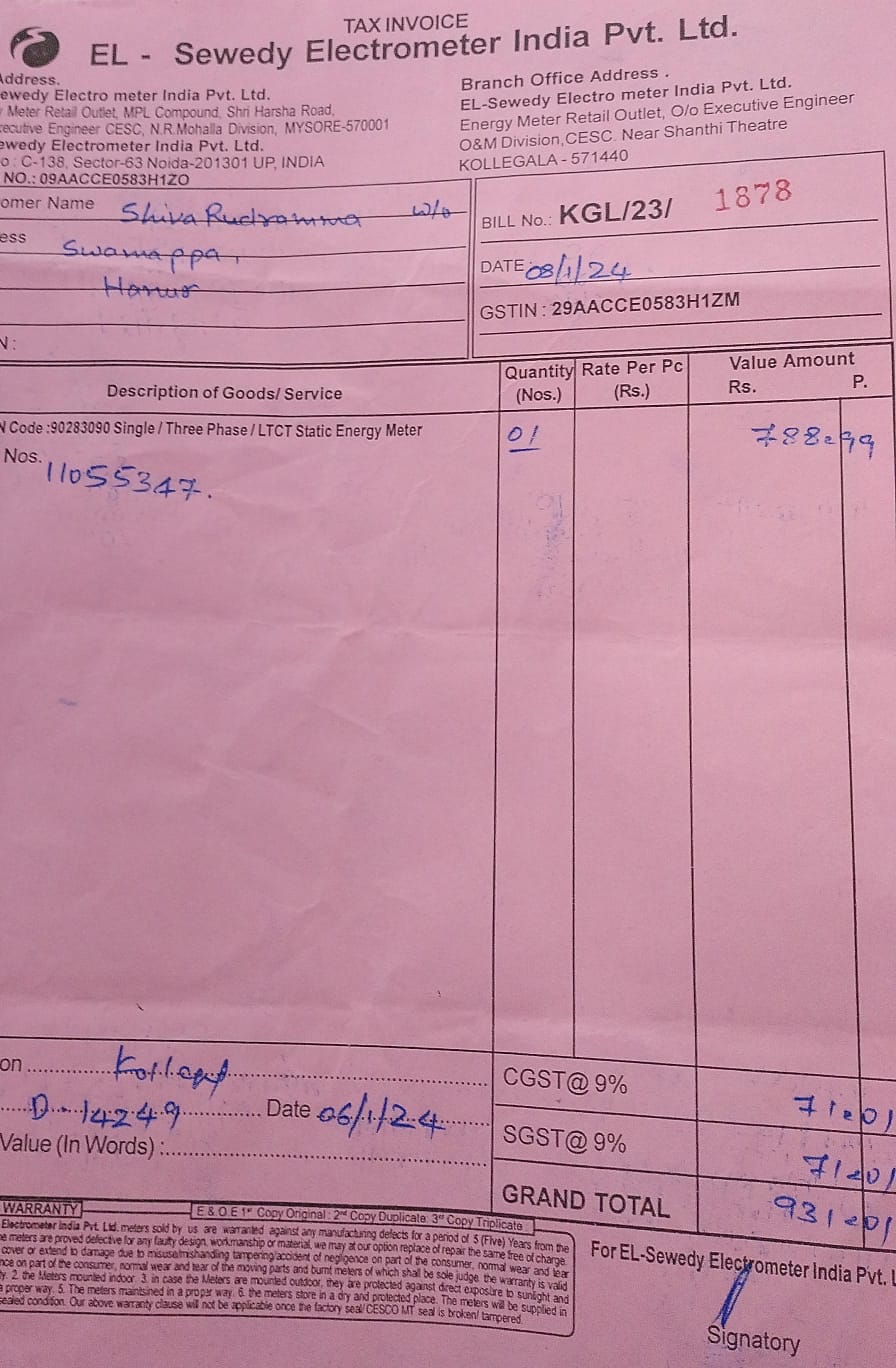 TAX INVOICE
EL - Sewedy Electrometer India Pvt. Ltd.
Address.
ewedy Electro meter India Pvt. Ltd.
Meter Retail Outlet, MPL Compound, Shri Harsha Road,
ecutive Engineer CESC, N.R.Mohalla Division, MYSORE-570001
ewedy Electrometer India Pvt. Ltd.
o : C-138, Sector-63 Noida-201301 UP, INDIA
NO.: 09AACCE0583H1ZO
Branch Office Address .
EL-Sewedy Electro meter India Pvt. Ltd.
Energy Meter Retail Outlet, O/o Executive Engineer
O&M Division,CESC. Near Shanthi Theatre
KOLLEGALA - 571440
omer Name Shiva Rudramma w/o
ess Swamappa,
Hanur
N :
BILL No.: KGL/23/ 1878
DATE 08/1/24
GSTIN : 29AACCE0583H1ZM
Description of Goods/ Service Quantity (Nos.) Rate Per Pc (Rs.) Value Amount Rs. P.
N Code :90283090 Single / Three Phase / LTCT Static Energy Meter 01 788=99
Nos. 11055347.
on
D-14249 Date 06/1/24
Value (In Words) :
CGST@ 9% 71=01
SGST@ 9% 71=01
GRAND TOTAL 931=01
WARRANTY E & O.E 1st Copy Original : 2nd Copy Duplicate: 3rd Copy Triplicate
Electrometer India Pvt. Ltd. meters sold by us are warranted against any manufacturing defects for a period of 5 (Five) Years from the
e meters are proved defective for any faulty design, workmanship or material, we may at our option replace of repair the same free of charge.
cover or extend to damage due to misuse/mishandling tampering/accident of negligence on part of the consumer, normal wear and tear
nce on part of the consumer, normal wear and tear of the moving parts and burnt meters of which shall be sole judge. the warranty is valid
ly. 2. the Meters mounted indoor. 3. in case the Meters are mounted outdoor, they are protected against direct exposure to sunlight and
a proper way. 5. The meters maintsined in a proper way. 6. the meters store in a dry and protected place. The meters will be supplied in
sealed condition. Our above warranty clause will not be applicable once the factory seal/ CESCO MT seal is broken/ tampered.
For EL-Sewedy Electrometer India Pvt. L
Signatory